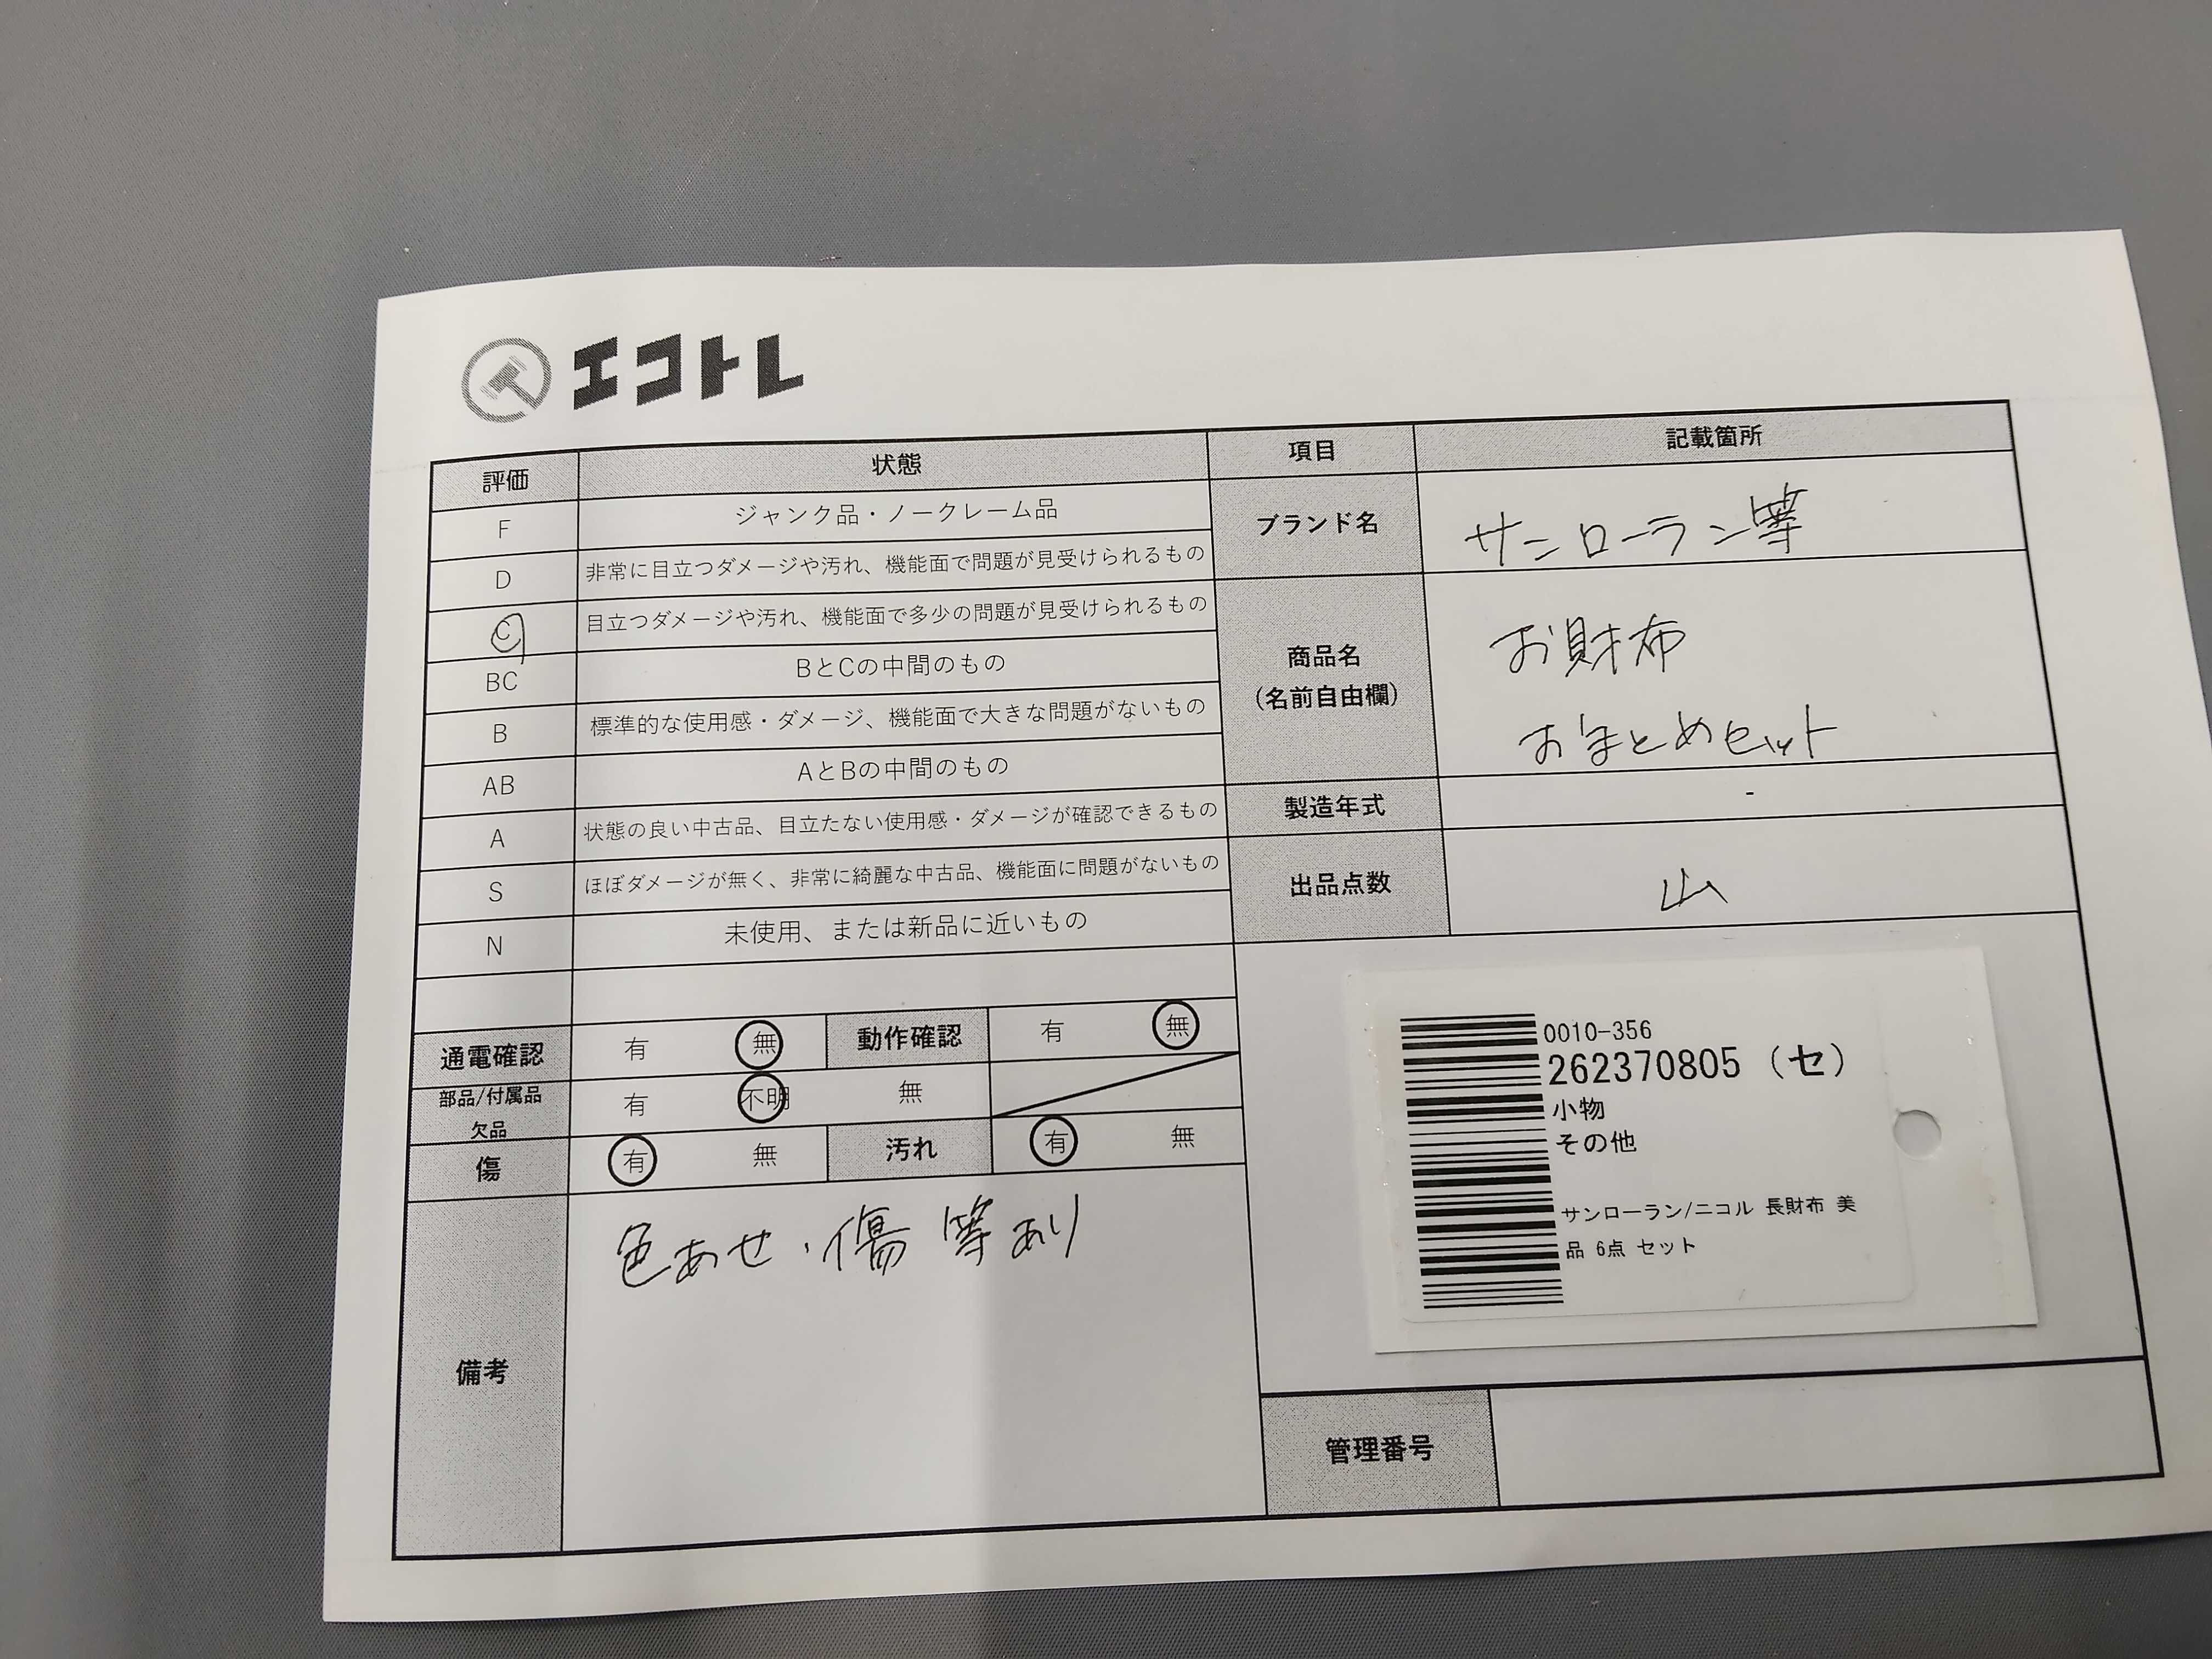 エコトレ
評価 状態 項目 記載箇所
F ジャンク品・ノークレーム品
D 非常に目立つダメージや汚れ、機能面で問題が見受けられるもの
C 目立つダメージや汚れ、機能面で多少の問題が見受けられるもの
BC BとCの中間のもの
B 標準的な使用感・ダメージ、機能面で大きな問題がないもの
AB AとBの中間のもの
A 状態の良い中古品、目立たない使用感・ダメージが確認できるもの
S ほぼダメージが無く、非常に綺麗な中古品、機能面に問題がないもの
N 未使用、または新品に近いもの
ブランド名 サンローラン等
商品名
(名前自由欄)
お財布
おまとめセット
製造年式 -
出品点数 山
通電確認 有 無 動作確認 有 無
部品/付属品
欠品
有 不明 無
傷 有 無 汚れ 有 無
備考
色あせ・傷等あり
0010-356
262370805 (セ)
小物
その他
サンローラン/ニコル 長財布 美
品 6点 セット
管理番号